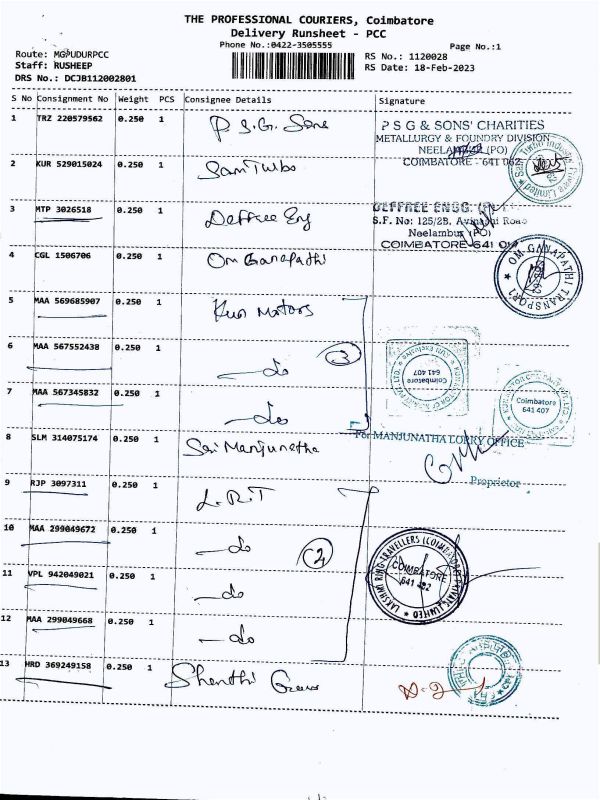 THE PROFESSIONAL COURIERS, Coimbatore
Delivery Runsheet - PCC
Phone No.:0422-3505555 Page No.:1
Route: MGPUDURPCC RS No.: 1120028
Staff: RUSHEEP RS Date: 18-Feb-2023
DRS No.: DCJB112002801
S No Consignment No Weight PCS Consignee Details Signature
1 TRZ 220579562 0.250 1 P S.G. Sons
P S G & SONS' CHARITIES
METALLURGY & FOUNDRY DIVISION
NEELAMBUR (PO)
COIMBATORE - 641 062
2 KUR 529015024 0.250 1 Sam Turbo
3 MTP 3026518 0.250 1 Deffree Eng
DEFFREE ENGG.
S.F. No: 125/2B, Avinashi Road
Neelambur (PO)
COIMBATORE-641 0
4 CGL 1506706 0.250 1 Om Ganapathi
OM GANAPATHI TRANSPORT
5 MAA 569685907 0.250 1 Kun Motors
6 MAA 567552438 0.250 1 do 3
Coimbatore
641 407
7 MAA 567345832 0.250 1 do
Coimbatore
641 407
8 SLM 314075174 0.250 1 Sai Manjunatha
For MANJUNATHA LORRY OFFICE
Proprietor
9 RJP 3097311 0.250 1 L.R.T
10 MAA 299049672 0.250 1 do 2
LAKSHMI RING TRAVELLERS (COIMBATORE) PRIVATE LIMITED
COIMBATORE
641 402
11 VPL 942049021 0.250 1 do
12 MAA 299049668 0.250 1 do
13 HRD 369249158 0.250 1 Shanthi Gears